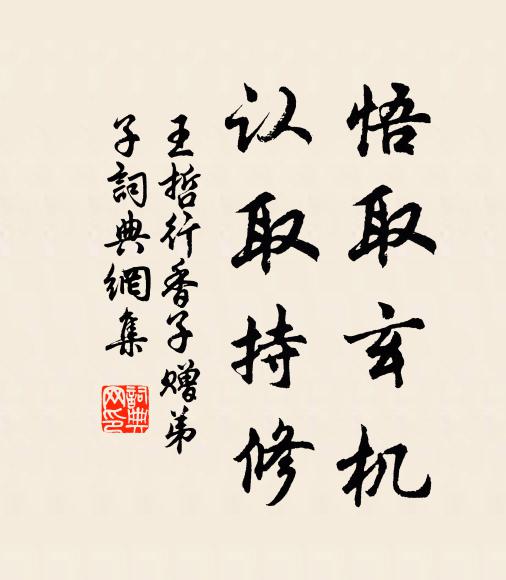 悟取玄机
认取持修
王哲行香子赠弟
子詞典網集
詞典
网印